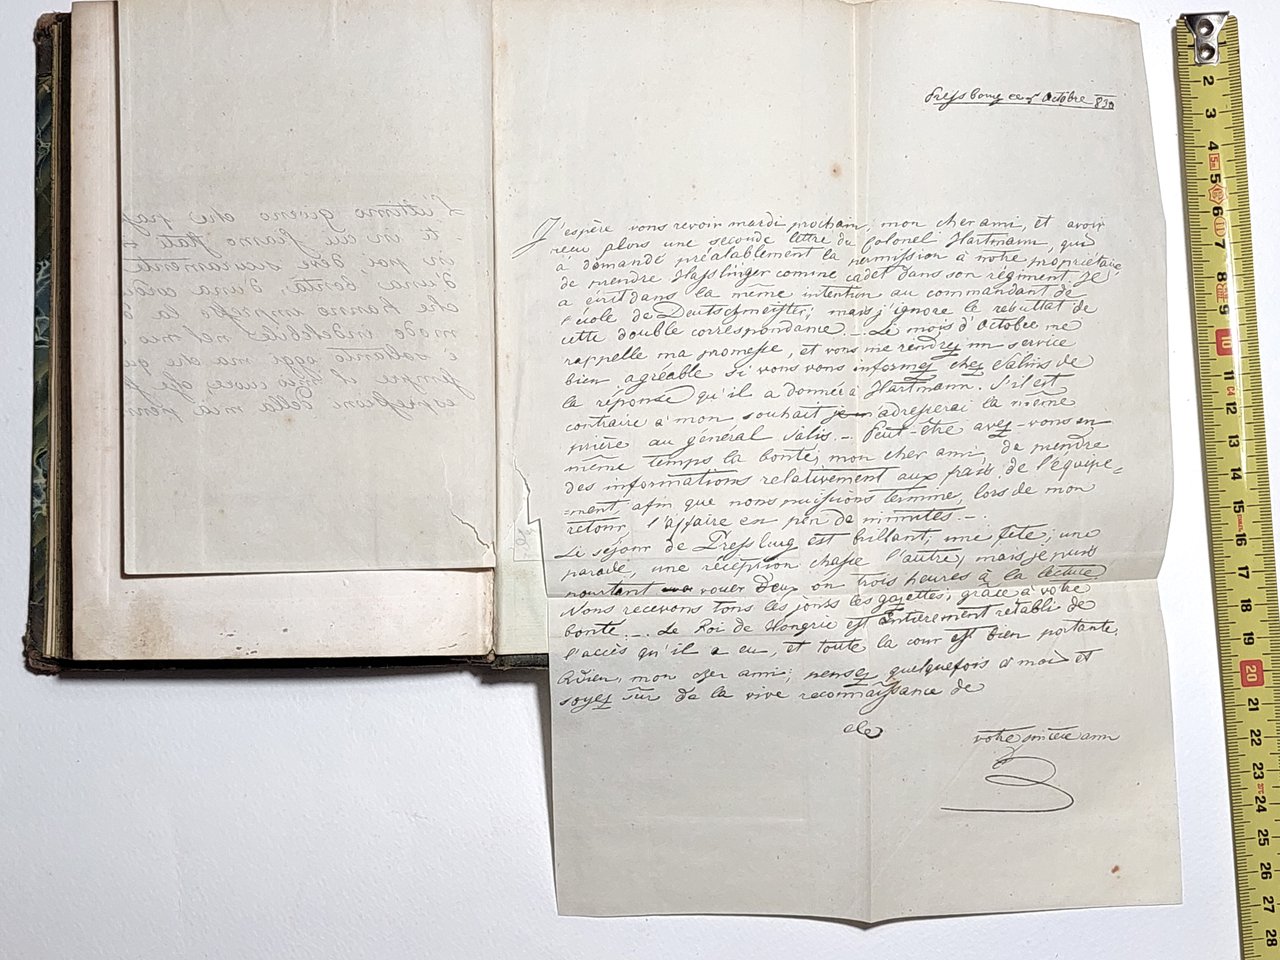 Pressbourg ce 5 Octobre 830
J'espère vous revoir mardi prochain, mon cher ami, et avoir
reçu alors une seconde lettre du Colonel Hartmann, qui
a demandé préalablement la permission à notre propriétaire,
de prendre Hasslinger comme cadet dans son régiment. Je
a écrit dans la même intention au commandant de
l'école de Deutschmeister; mais j'ignore le résultat de
cette double correspondance. Le mois d'Octobre me
rappelle ma promesse, et vous me rendrez un service
bien agréable si vous vous informez chez Salins de
la réponse qu'il a donnée à Hartmann. S'il est
contraire à mon souhait adresserai la même
prière au général Salis. Peut-être avez-vous en
même temps la bonté, mon cher ami, de prendre
des informations relativement aux frais de l'équipe=
=ment, afin que nous puissions terminer, lors de mon
retour, l'affaire en peu de minutes.
Le séjour de Pressburg est brillant; une fête, une
parade, une réception chasse l'autre, mais je puis
pourtant vouer deux ou trois heures à la lecture.
Nous recevons tous les jours les gazettes, grâce à votre
bonté. Le Roi de Hongrie est entièrement rétabli de
l'accès qu'il a eu, et toute la cour est bien portante.
Adieu, mon cher ami; pensez quelquefois à moi et
soyez sûr de la vive reconnaissance de
votre sincère ami
L'ultimo giorno che pas
in cui siamo stati
d'una bontà, d'una
che hanno impresso la
modo indelebile nel
e soltanto oggi ma che
sempre il mio cuore
espression della mia
1
2
3
4
5
6
7
8
9
10
11
12
13
14
15
16
17
18
19
20
21
22
23
24
25
26
27
28